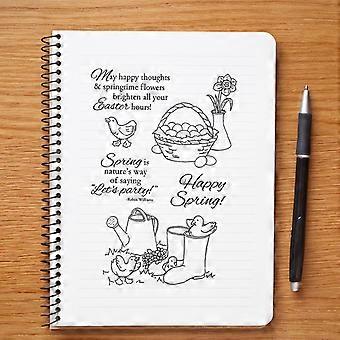 May happy thoughts
& springtime flowers
brighten all your
Easter hours!
Spring is
nature's way
of saying
"Let's party!"
-Robin Williams
Happy
Spring!